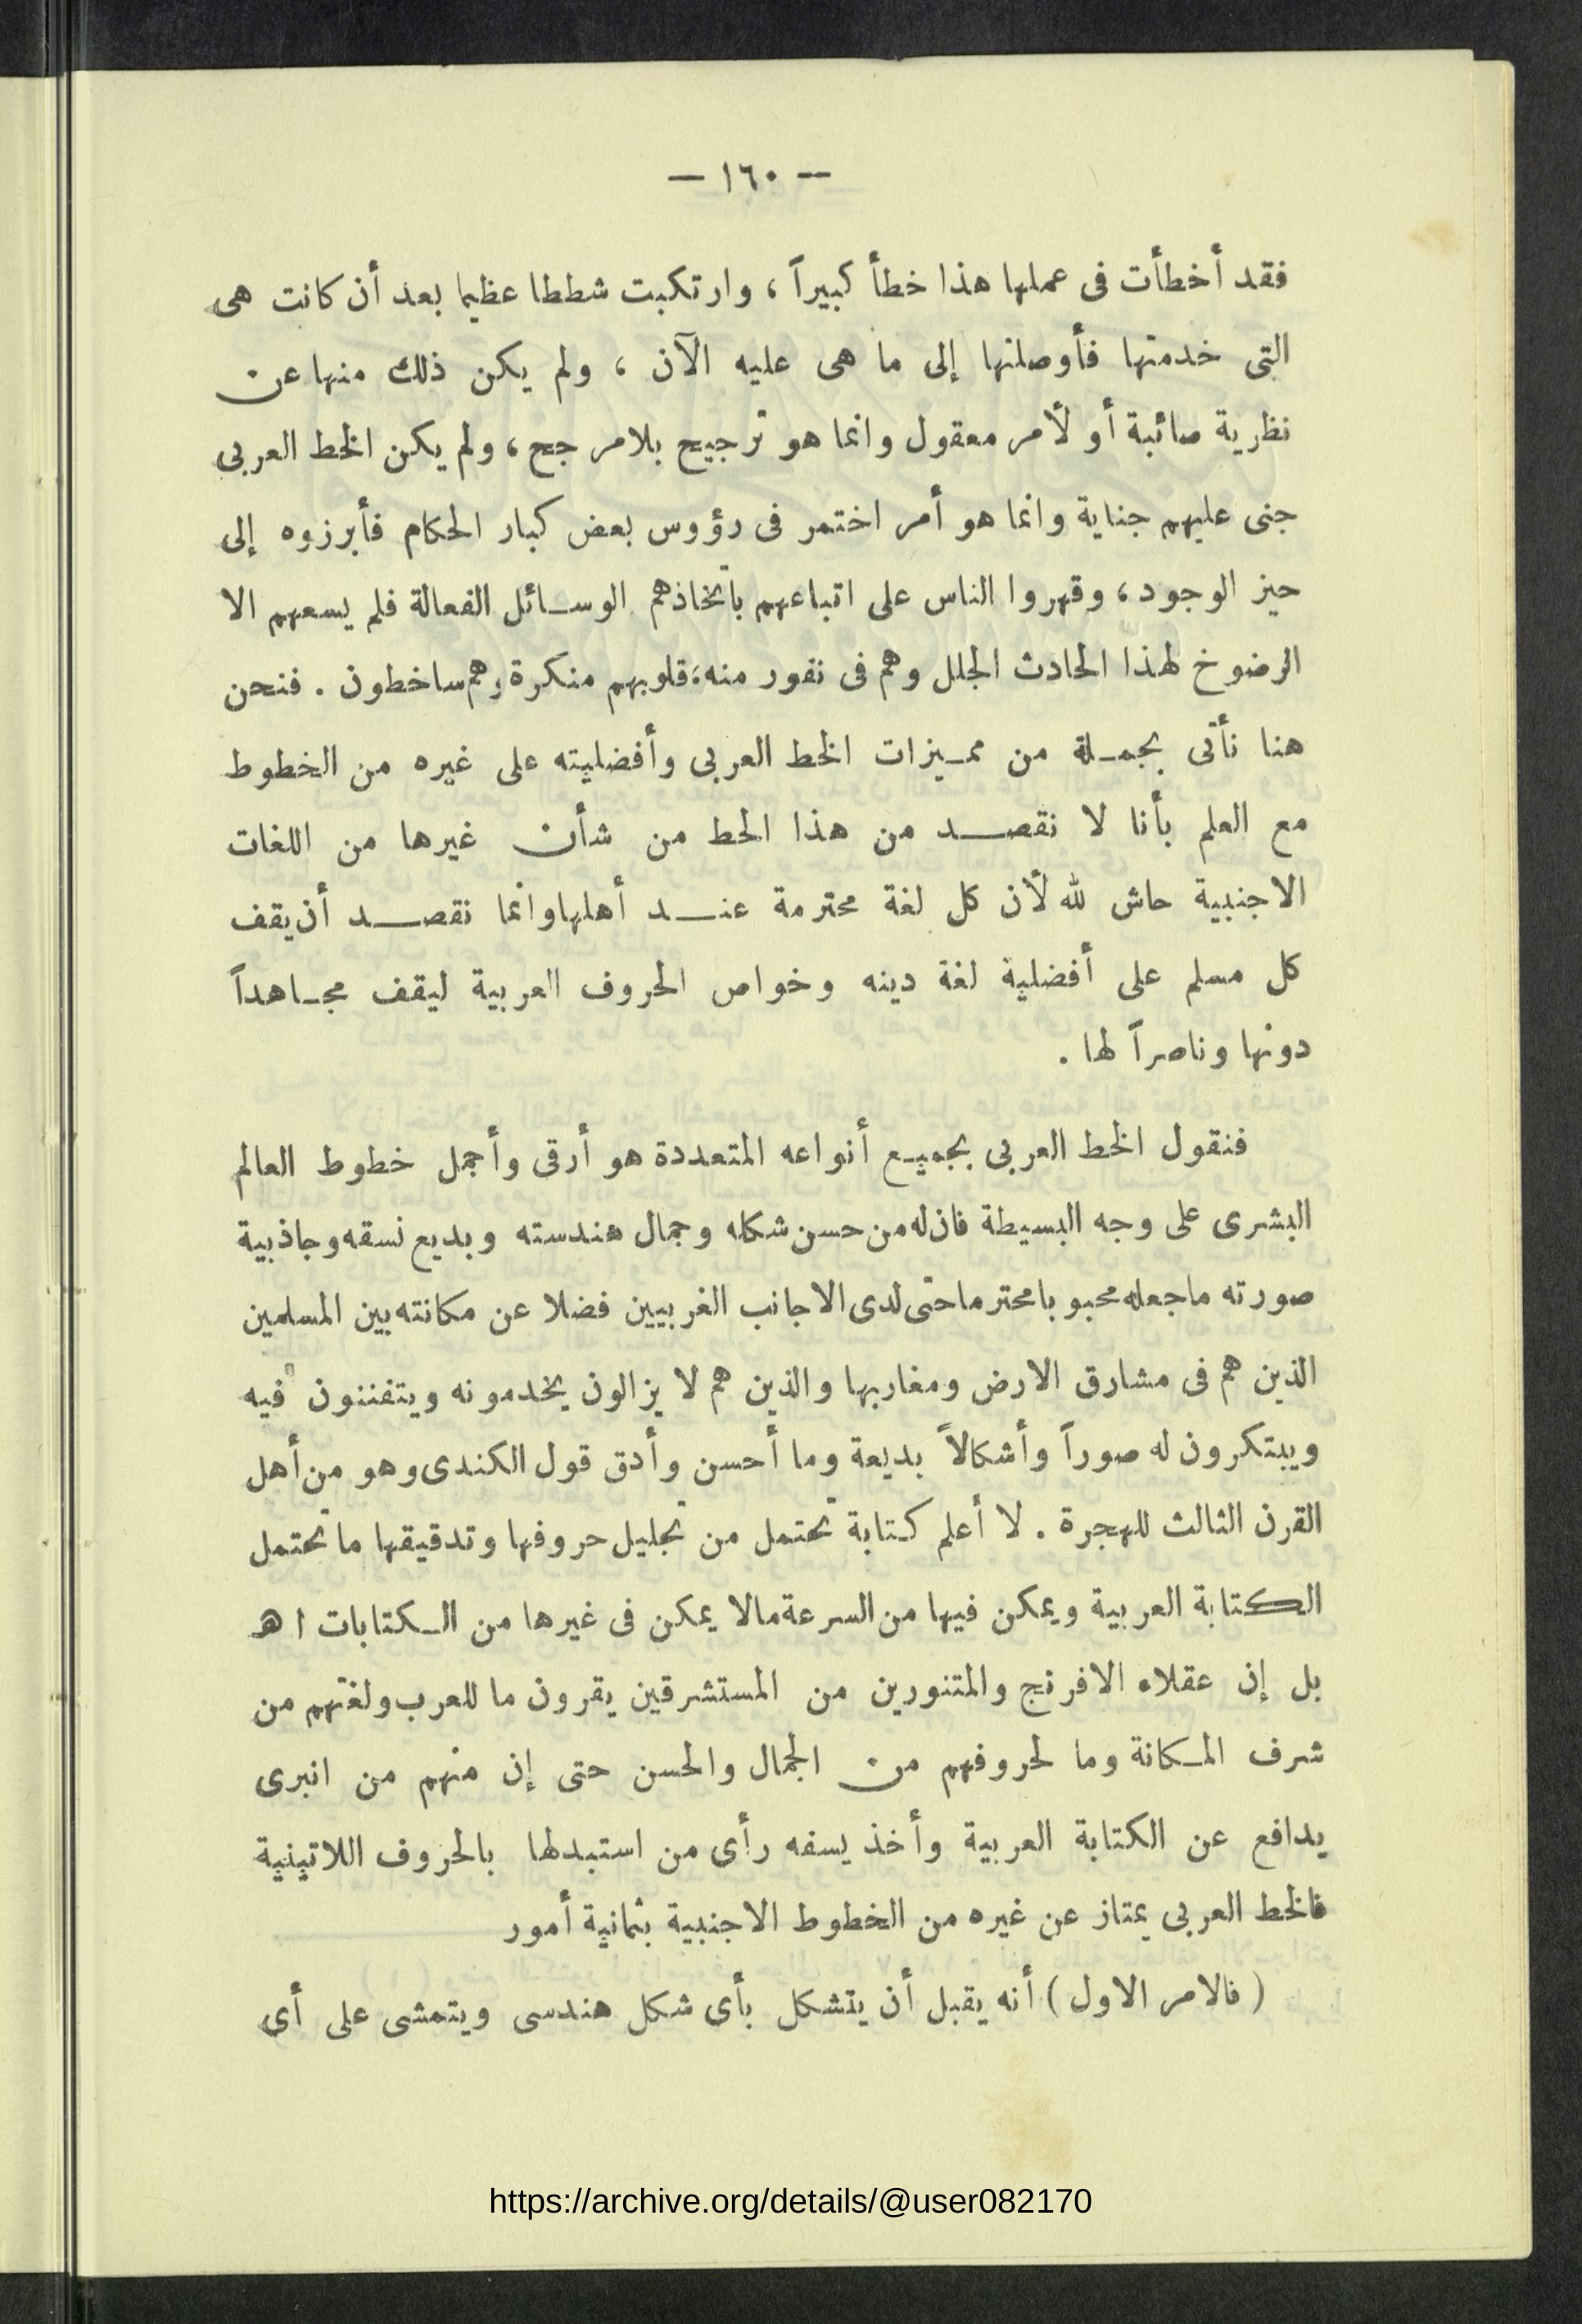 — ١٦٠ —
فقد أخطأت فى عملها هذا خطأ كبيراً ، وارتكبت شططا عظيما بعد أن كانت هى
التى خدمتها فأوصلتها إلى ما هى عليه الآن ، ولم يكن ذلك منها عن
نظرية صائبة أو لأمر معقول وانما هو ترجيح بلا مرجح ، ولم يكن الخط العربى
جنى عليهم جناية وانما هو أمر اختمر فى رؤوس بعض كبار الحكام فأبرزوه إلى
حيز الوجود ، وقهروا الناس على اتباعهم باتخاذهم الوسائل الفعالة فلم يسعهم الا
الرضوخ لهذا الحادث الجلل وهم فى نفور منه، قلوبهم منكرة وهم ساخطون . فنحن
هنا نأتى بجملة من مميزات الخط العربى وأفضليته على غيره من الخطوط
مع العلم بأنا لا نقصد من هذا الحط من شأن غيرها من اللغات
الاجنبية حاش لله لأن كل لغة محترمة عند أهلها وانما نقصد أن يقف
كل مسلم على أفضلية لغة دينه وخواص الحروف العربية ليقف مجاهداً
دونها وناصراً لها .
فنقول الخط العربى بجميع أنواعه المتعددة هو أرقى وأجمل خطوط العالم
البشرى على وجه البسيطة فان له من حسن شكله وجمال هندسته وبديع نسقه وجاذبية
صورته ما جعله محبوبا محترما حتى لدى الاجانب الغربيين فضلا عن مكانته بين المسلمين
الذين هم فى مشارق الارض ومغاربها والذين هم لا يزالون يخدمونه ويتفننون فيه
ويبتكرون له صوراً وأشكالاً بديعة وما أحسن وأدق قول الكندى وهو من أهل
القرن الثالث للهجرة . لا أعلم كتابة تحتمل من تجليل حروفها وتدقيقها ما تحتمل
الكتابة العربية ويمكن فيها من السرعة مالا يمكن فى غيرها من الكتابات ا هـ
بل إن عقلاء الافرنج والمتنورين من المستشرقين يقرون ما للعرب ولغتهم من
شرف المكانة وما لحروفهم من الجمال والحسن حتى إن منهم من انبرى
يدافع عن الكتابة العربية وأخذ يسفه رأى من استبدلها بالحروف اللاتينية
فالخط العربى يمتاز عن غيره من الخطوط الاجنبية بثمانية أمور
( فالامر الاول ) أنه يقبل أن يتشكل بأى شكل هندسى ويتمشى على أى
https://archive.org/details/@user082170